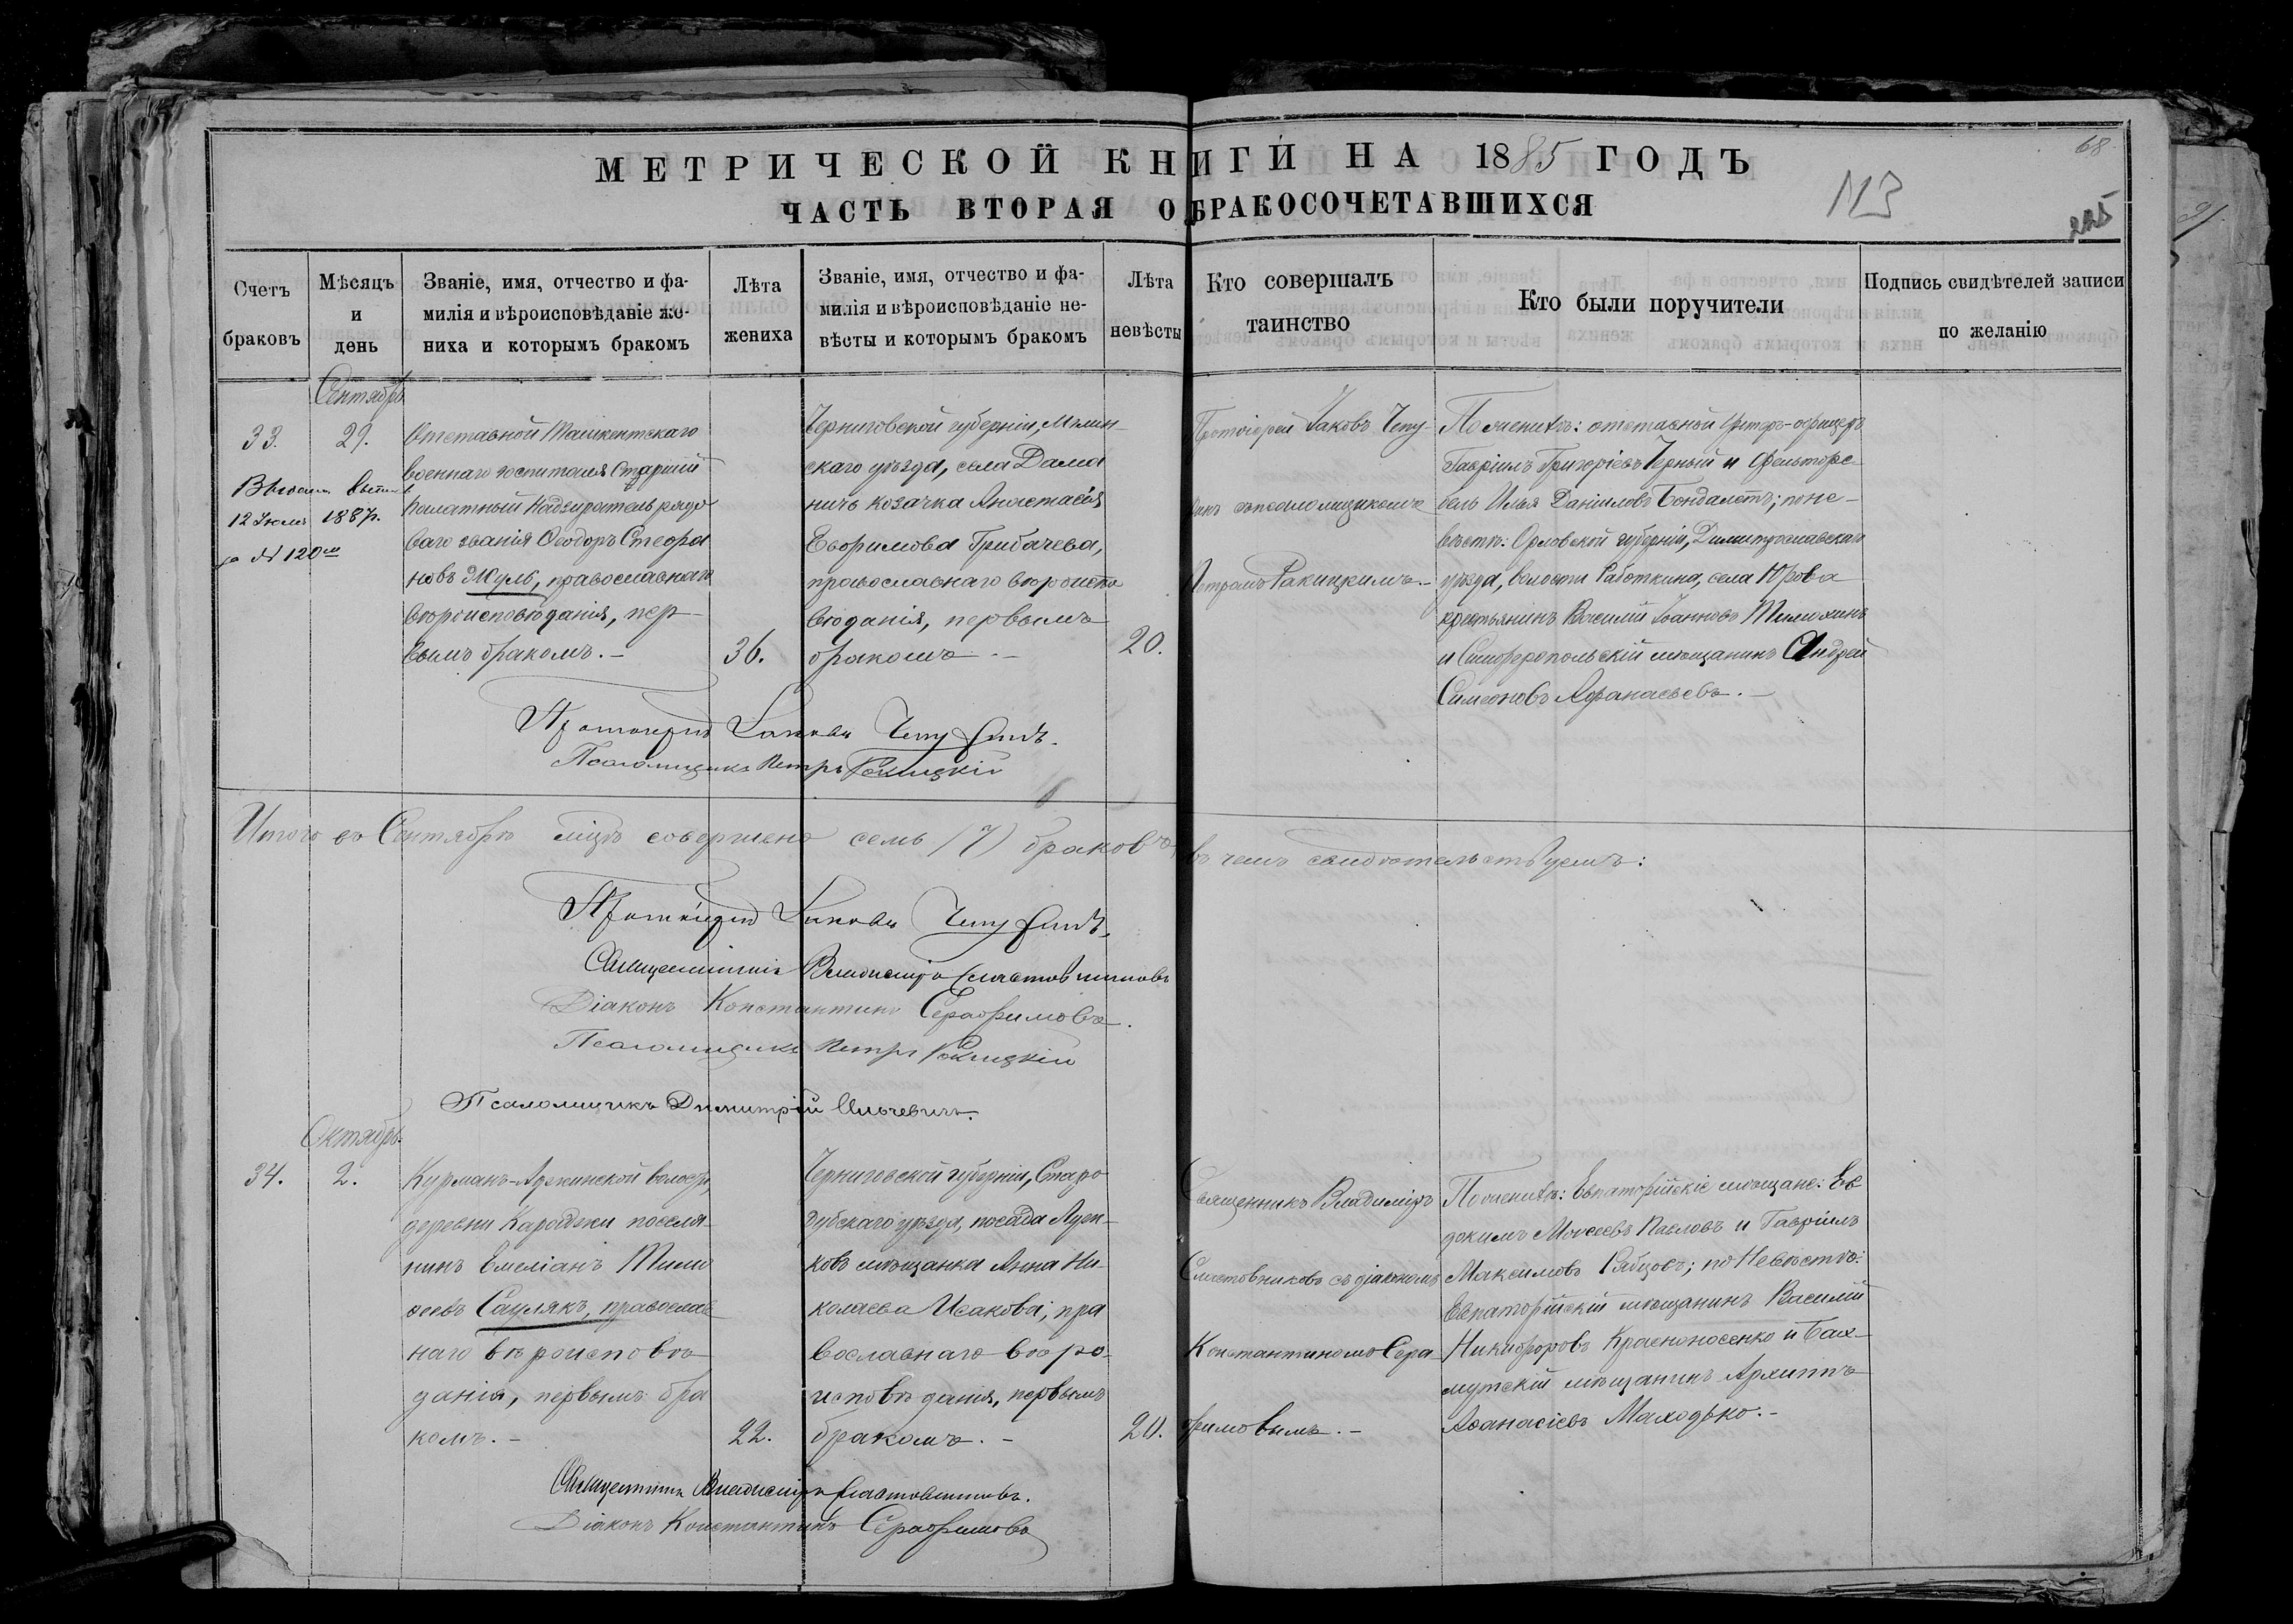 68
МЕТРИЧЕСКОЙ КНИГИ НА 1885 ГОДЪ
113
ЧАСТЬ ВТОРАЯ О БРАКОСОЧЕТАВШИХСЯ
225
Счетъ
браковъ
Мѣсяцъ
и
день
Званіе, имя, отчество и фа-
милія и вѣроисповѣданіе же-
ниха и которымъ бракомъ
Лѣта
жениха
Званіе, имя, отчество и фа-
милія и вѣроисповѣданіе не-
вѣсты и которымъ бракомъ
Лѣта
невѣсты
Кто совершалъ
таинство
Кто были поручители
Подпись свидѣтелей записи
по желанію
Сентябрь
33.
29.
12 Іюля 1887г.
за № 120м
Отставной Ташкентскаго
военнаго госпиталя Старшій
Палатный Надзиратель рядо
ваго званія Ѳеодоръ Стефа
новъ Жуль, православнаго
вѣроисповѣданія, пер-
вымъ бракомъ.-
36.
Черниговской губерніи, Мглин-
скаго уѣзда, села Дама
ничъ козачка Анастасія
Евфимова Грибачева,
православнаго вѣроиспо
вѣданія, первымъ
бракомъ.-
20.
Протоіерей Іаковъ Чепу-
ринъ съ псаломщикомъ
Петромъ Ракицкимъ.-
По женихѣ: отставной Унтеръ-офицеръ
Гавріилъ Григоріевъ Черный и Фельтфе-
бель Илья Даніиловъ Бондалетъ; по не-
вѣстѣ: Орловской губерніи, Димитрославскаго
уѣзда, волости Работкина, села Юрова
крестьянинъ Василій Іоанновъ Тимохинъ
и Симферопольскій мѣщанинъ Андрей
Симеоновъ Афанасьевъ.-
Протоіерей Іаковъ Чепуринъ.
Псаломщикъ Петръ Ракицкій
Итого въ Сентябрѣ мцѣ совершено семь (7) браковъ, въ чемъ свидѣтельствуемъ:
Протоіерей Іаковъ Чепуринъ.
Священникъ Владиміръ Сластовниковъ
Діаконъ Константинъ Серафимовъ.
Псаломщикъ Петръ Ракицкій
Псаломщикъ Димитрій Ильчевичъ.
Октябрь.
34.
2.
Курманъ-Аджинской волости,
деревни поселя-
нинъ Емеліанъ Тимо
феевъ Сауляхъ, православ
наго вѣроисповѣ
данія, первымъ бра
комъ.-
22.
Черниговской губерніи, Старо
дубскаго уѣзда, посада Луж-
ковъ мѣщанка Анна Ни-
колаева Исакова; пра
вославнаго вѣро-
исповѣданія, первымъ
бракомъ.-
20.
Священникъ Владиміръ
Сластовниковъ съ діакономъ
Константиномъ Сера-
фимовымъ.-
По женихѣ: Евпаторійскіе мѣщане: Ев
докимъ Моисеевъ Павловъ и Гавріилъ
Максимовъ Рябцовъ; по Невѣстѣ:
Евпаторійскій мѣщанинъ Василій
Никифоровъ Красноносенко и Бах-
мутскій мѣщанинъ Архиппъ
Аѳанасіевъ Маходько.-
Священникъ Владиміръ Сластовниковъ.
Діаконъ Константинъ Серафимовъ